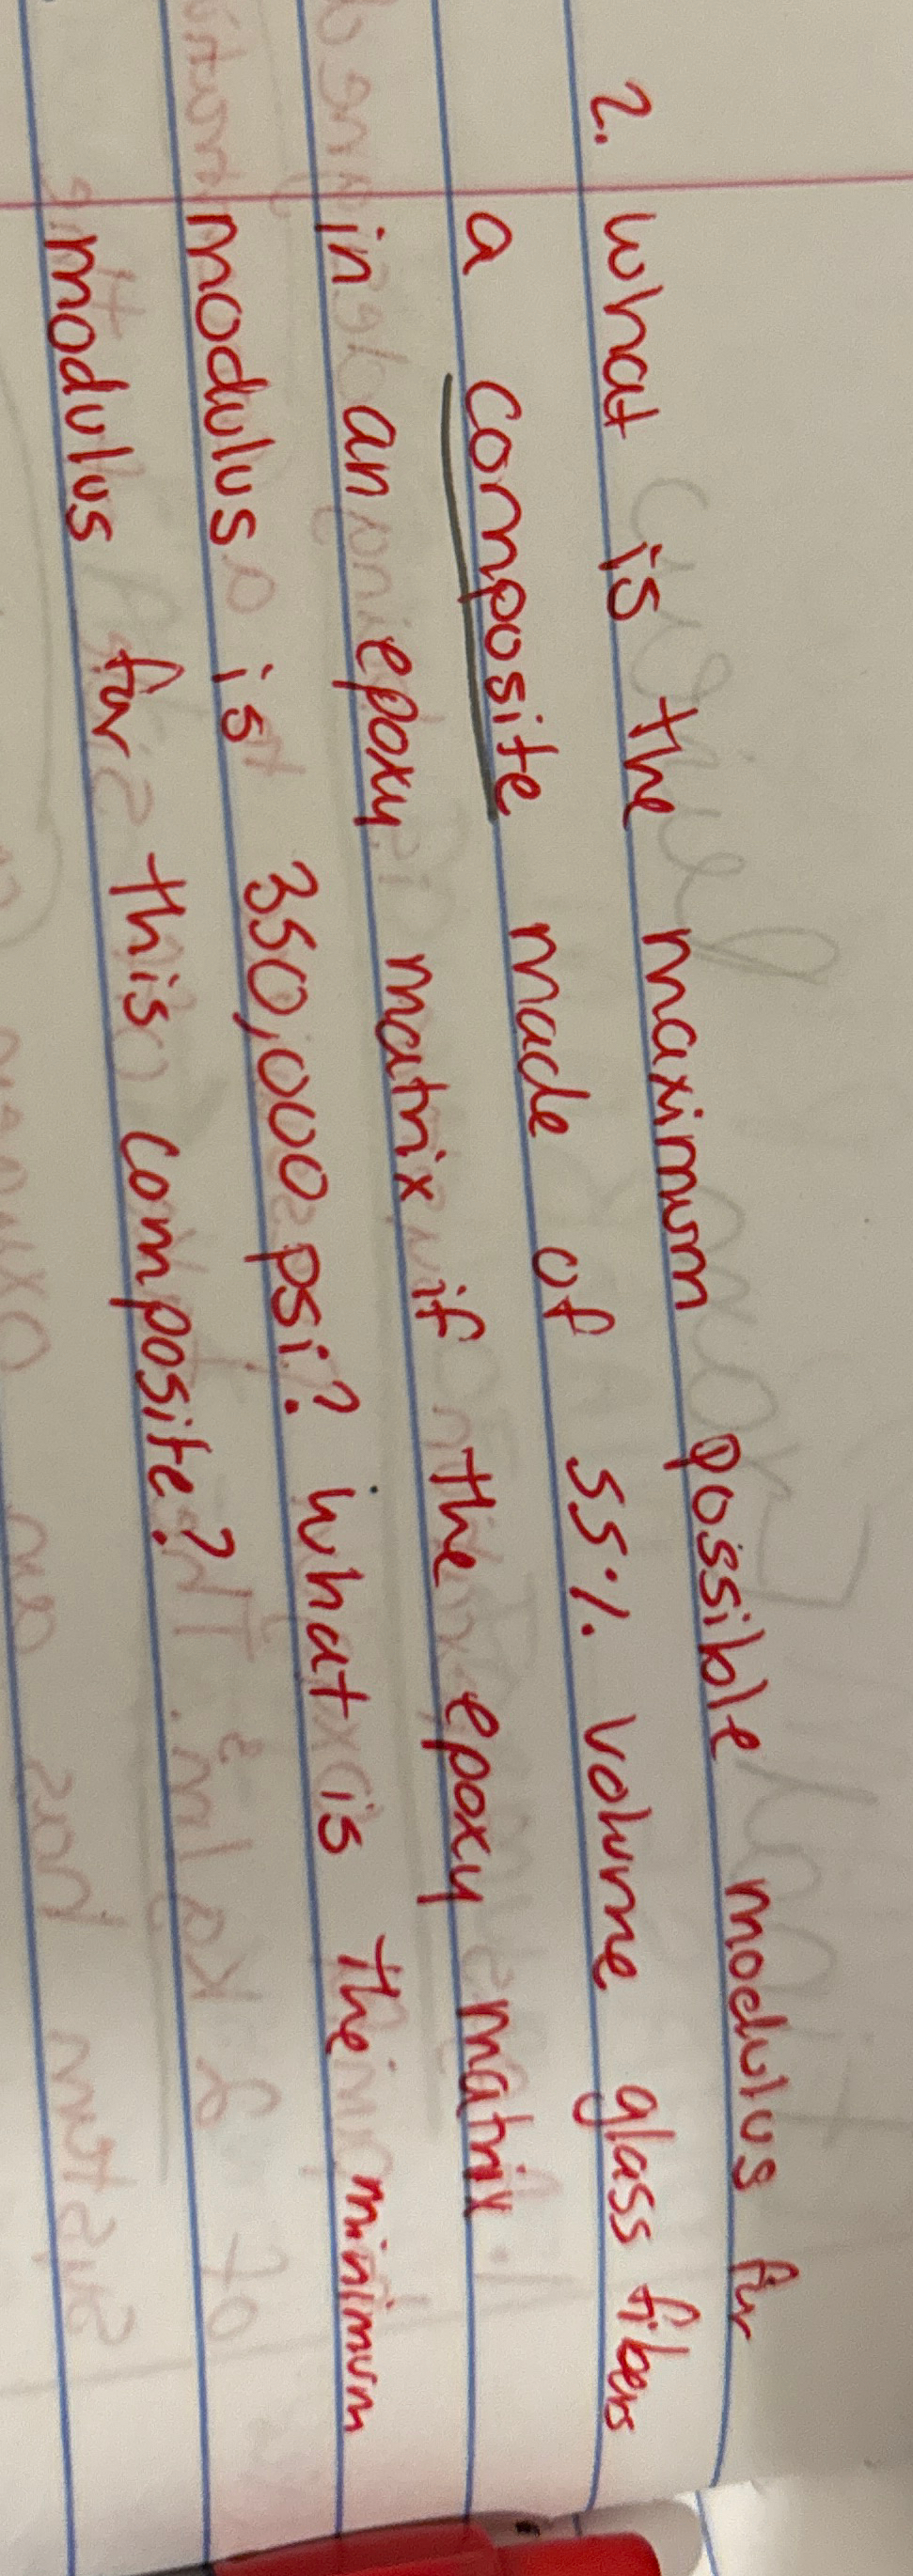 2. What is the maximum possible modulus for
a composite made of 55% volume glass fibers
in an epoxy matrix if the epoxy matrix
modulus is 350,000 psi? What is the minimum
modulus for this composite?